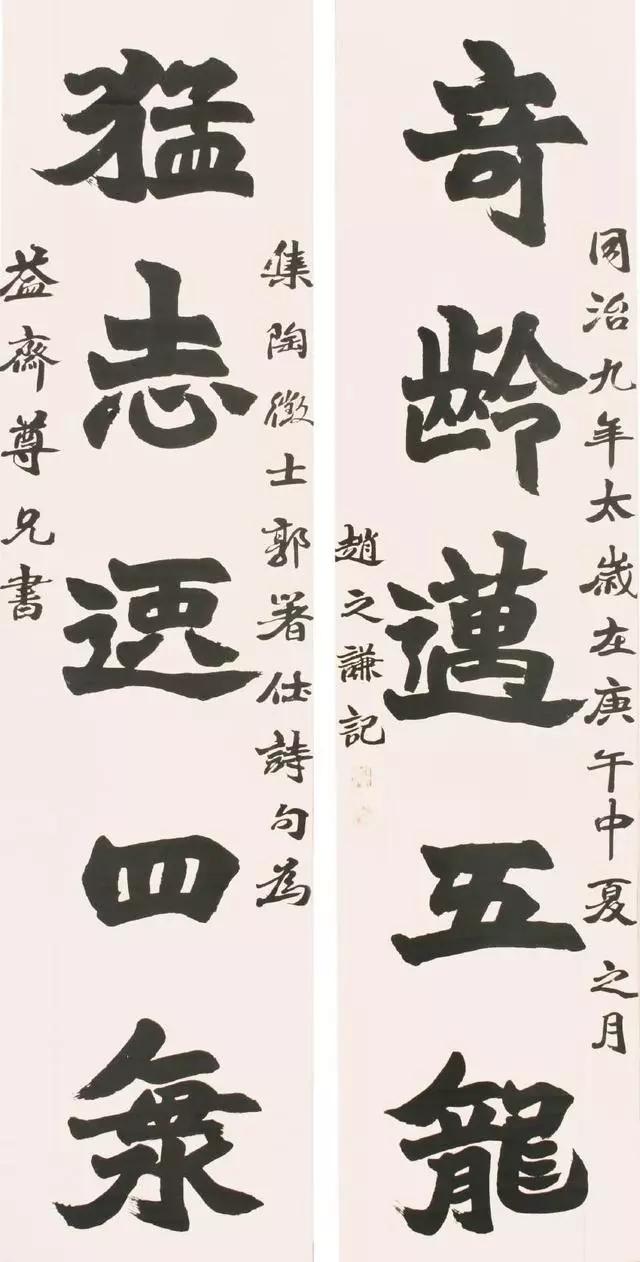 同治九年太歲在庚午中夏之月
奇齡邁五龍
趙之謙記
集陶徵士郭著作詩句為
猛志逸四海
益齋尊兄書